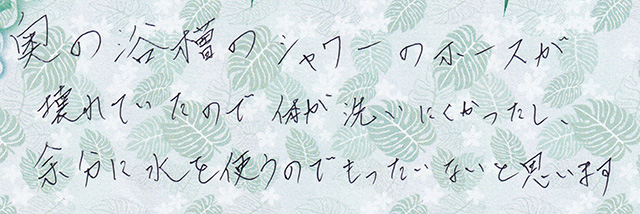 奥の浴槽のシャワーのホースが
壊れていたので体が洗いにくかったし、
余分に水を使うのでもったいないと思います